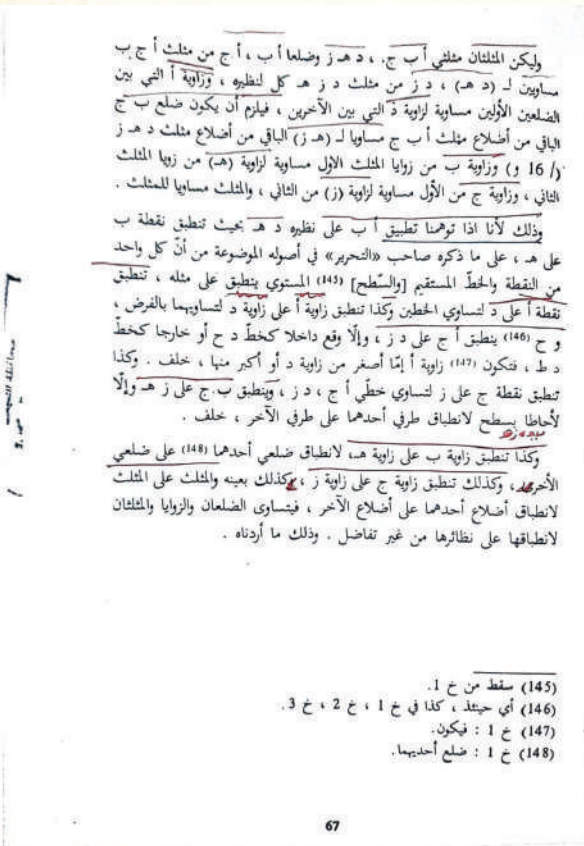 وليكن المثلثان مثلثي أ ب ج. ، د هـ ز وضلعا أ ب ، أ ج من مثلث أ ج ب
مساويين لـ (د هـ) ، د ز من مثلث د ز هـ كل لنظيره ، وزاوية أ التي بين
الضلعين الأولين مساوية لزاوية د التي بين الآخرين ، فيلزم أن يكون ضلع ب ج
الباقي من أضلاع مثلث أ ب ج مساويا لـ (هـ ز) الباقي من أضلاع مثلث د هـ ز
(/ 16 و) وزاوية ب من زوايا المثلث الاول مساوية لزاوية (هـ) من زويا المثلث
الثاني ، وزاوية ج من الأول مساوية لزاوية (ز) من الثاني ، والمثلث مساويا للمثلث .
وذلك لأنا اذا توهمنا تطبيق أ ب على نظيره د هـ بحيث تنطبق نقطة ب
على هـ ، على ما ذكره صاحب «التحرير» في أصوله الموضوعة من أنّ كل واحد
من النقطة والخطّ المستقيم [والسّطح] (145) المستوي ينطبق على مثله ، تنطبق
نقطة أ على د لتساوي الخطين وكذا تنطبق زاوية أ على زاوية د لتساويهما بالفرض ،
و ح (146) ينطبق أ ج على د ز ، وإلّا وقع داخلا كخطّ د ح أو خارجا كخطّ
د ط ، فتكون (147) زاوية أ إمّا أصغر من زاوية د أو أكبر منها ، خلف . وكذا
تنطبق نقطة ج على ز لتساوي خطّي أ ج ، د ز ، وينطبق ب.ج على ز هـ وإلّا
لأحاطا بسطح لانطباق طرفي أحدهما على طرفي الآخر ، خلف .
وكذا تنطبق زاوية ب على زاوية هـ، لانطباق ضلعي أحدهما (148) على ضلعي
الأخرى ، وكذلك تنطبق زاوية ج على زاوية ز ، وكذلك بعينه والمثلث على المثلث
لانطباق أضلاع أحدهما على أضلاع الآخر ، فيتساوى الضلعان والزوايا والمثلثان
لانطباقها على نظائرها من غير تفاضل . وذلك ما أردناه .
(145) سقط من خ 1.
(146) أي حينئذ ، كذا في خ 1 ، خ 2 ، خ 3.
(147) خ 1 : فيكون.
(148) خ 1 : ضلع أحديهما.
67